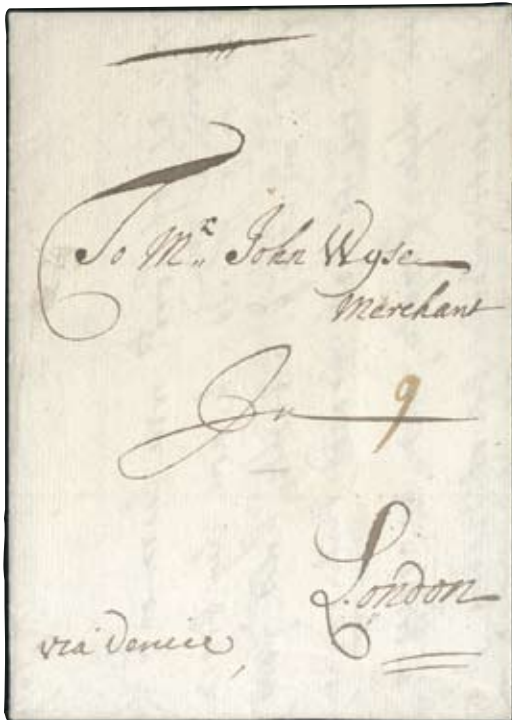 To Mr. John Wyse
Merchant
In 9
London
via Venice